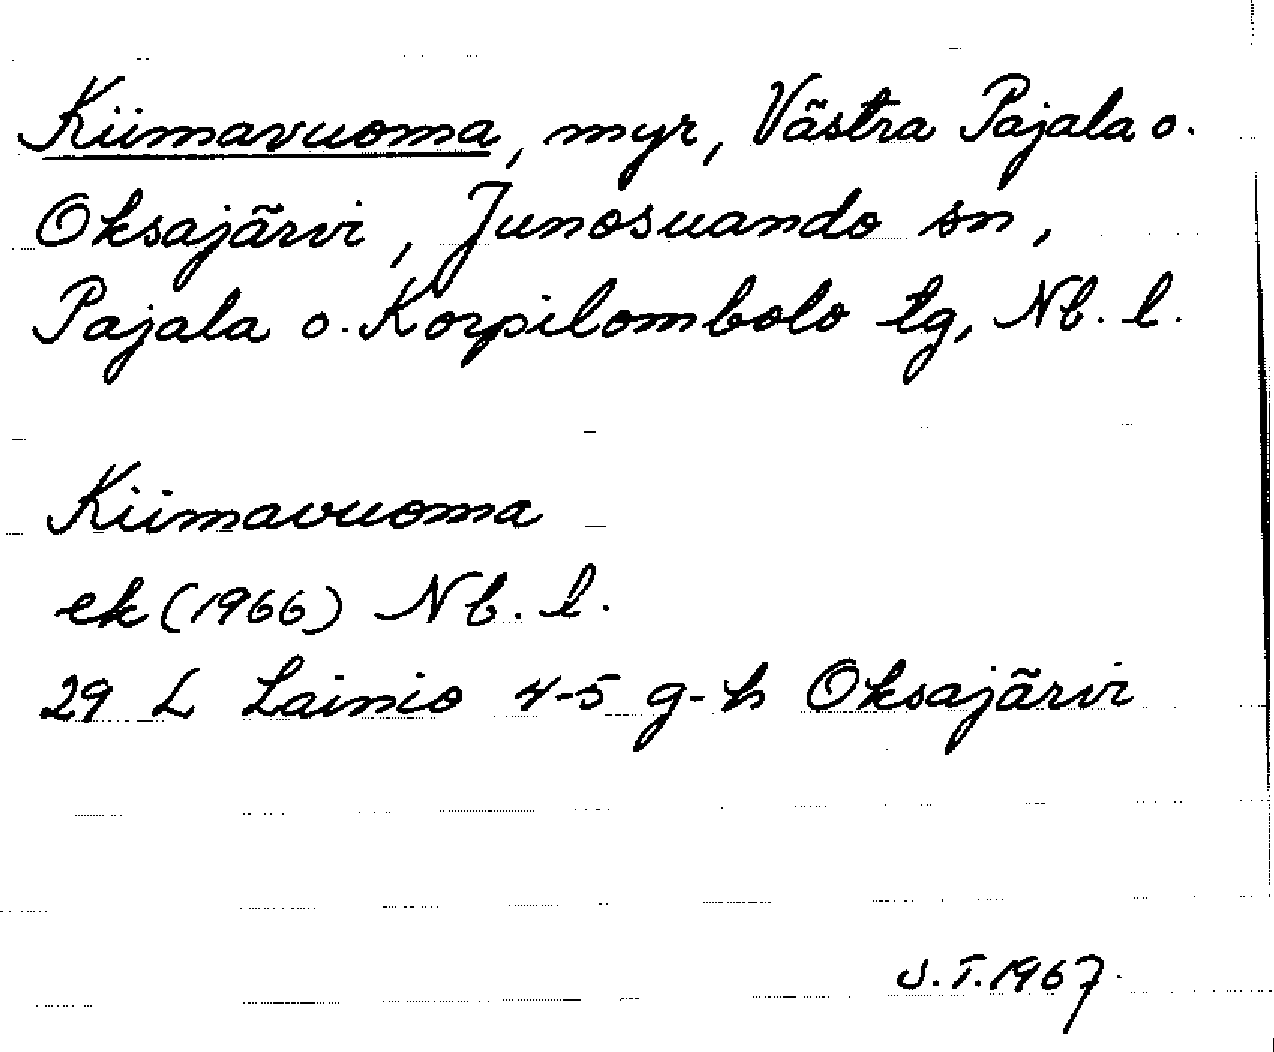 Kiimavuoma, myr, Västra Pajala o.
Oksajärvi, Junosuando sn,
Pajala o. Korpilombolo tg, Nb. l.
Kiimavuoma
ek (1966) Nb. l.
29 L Lainio 4-5 g-h Oksajärvi
J.T. 1967.